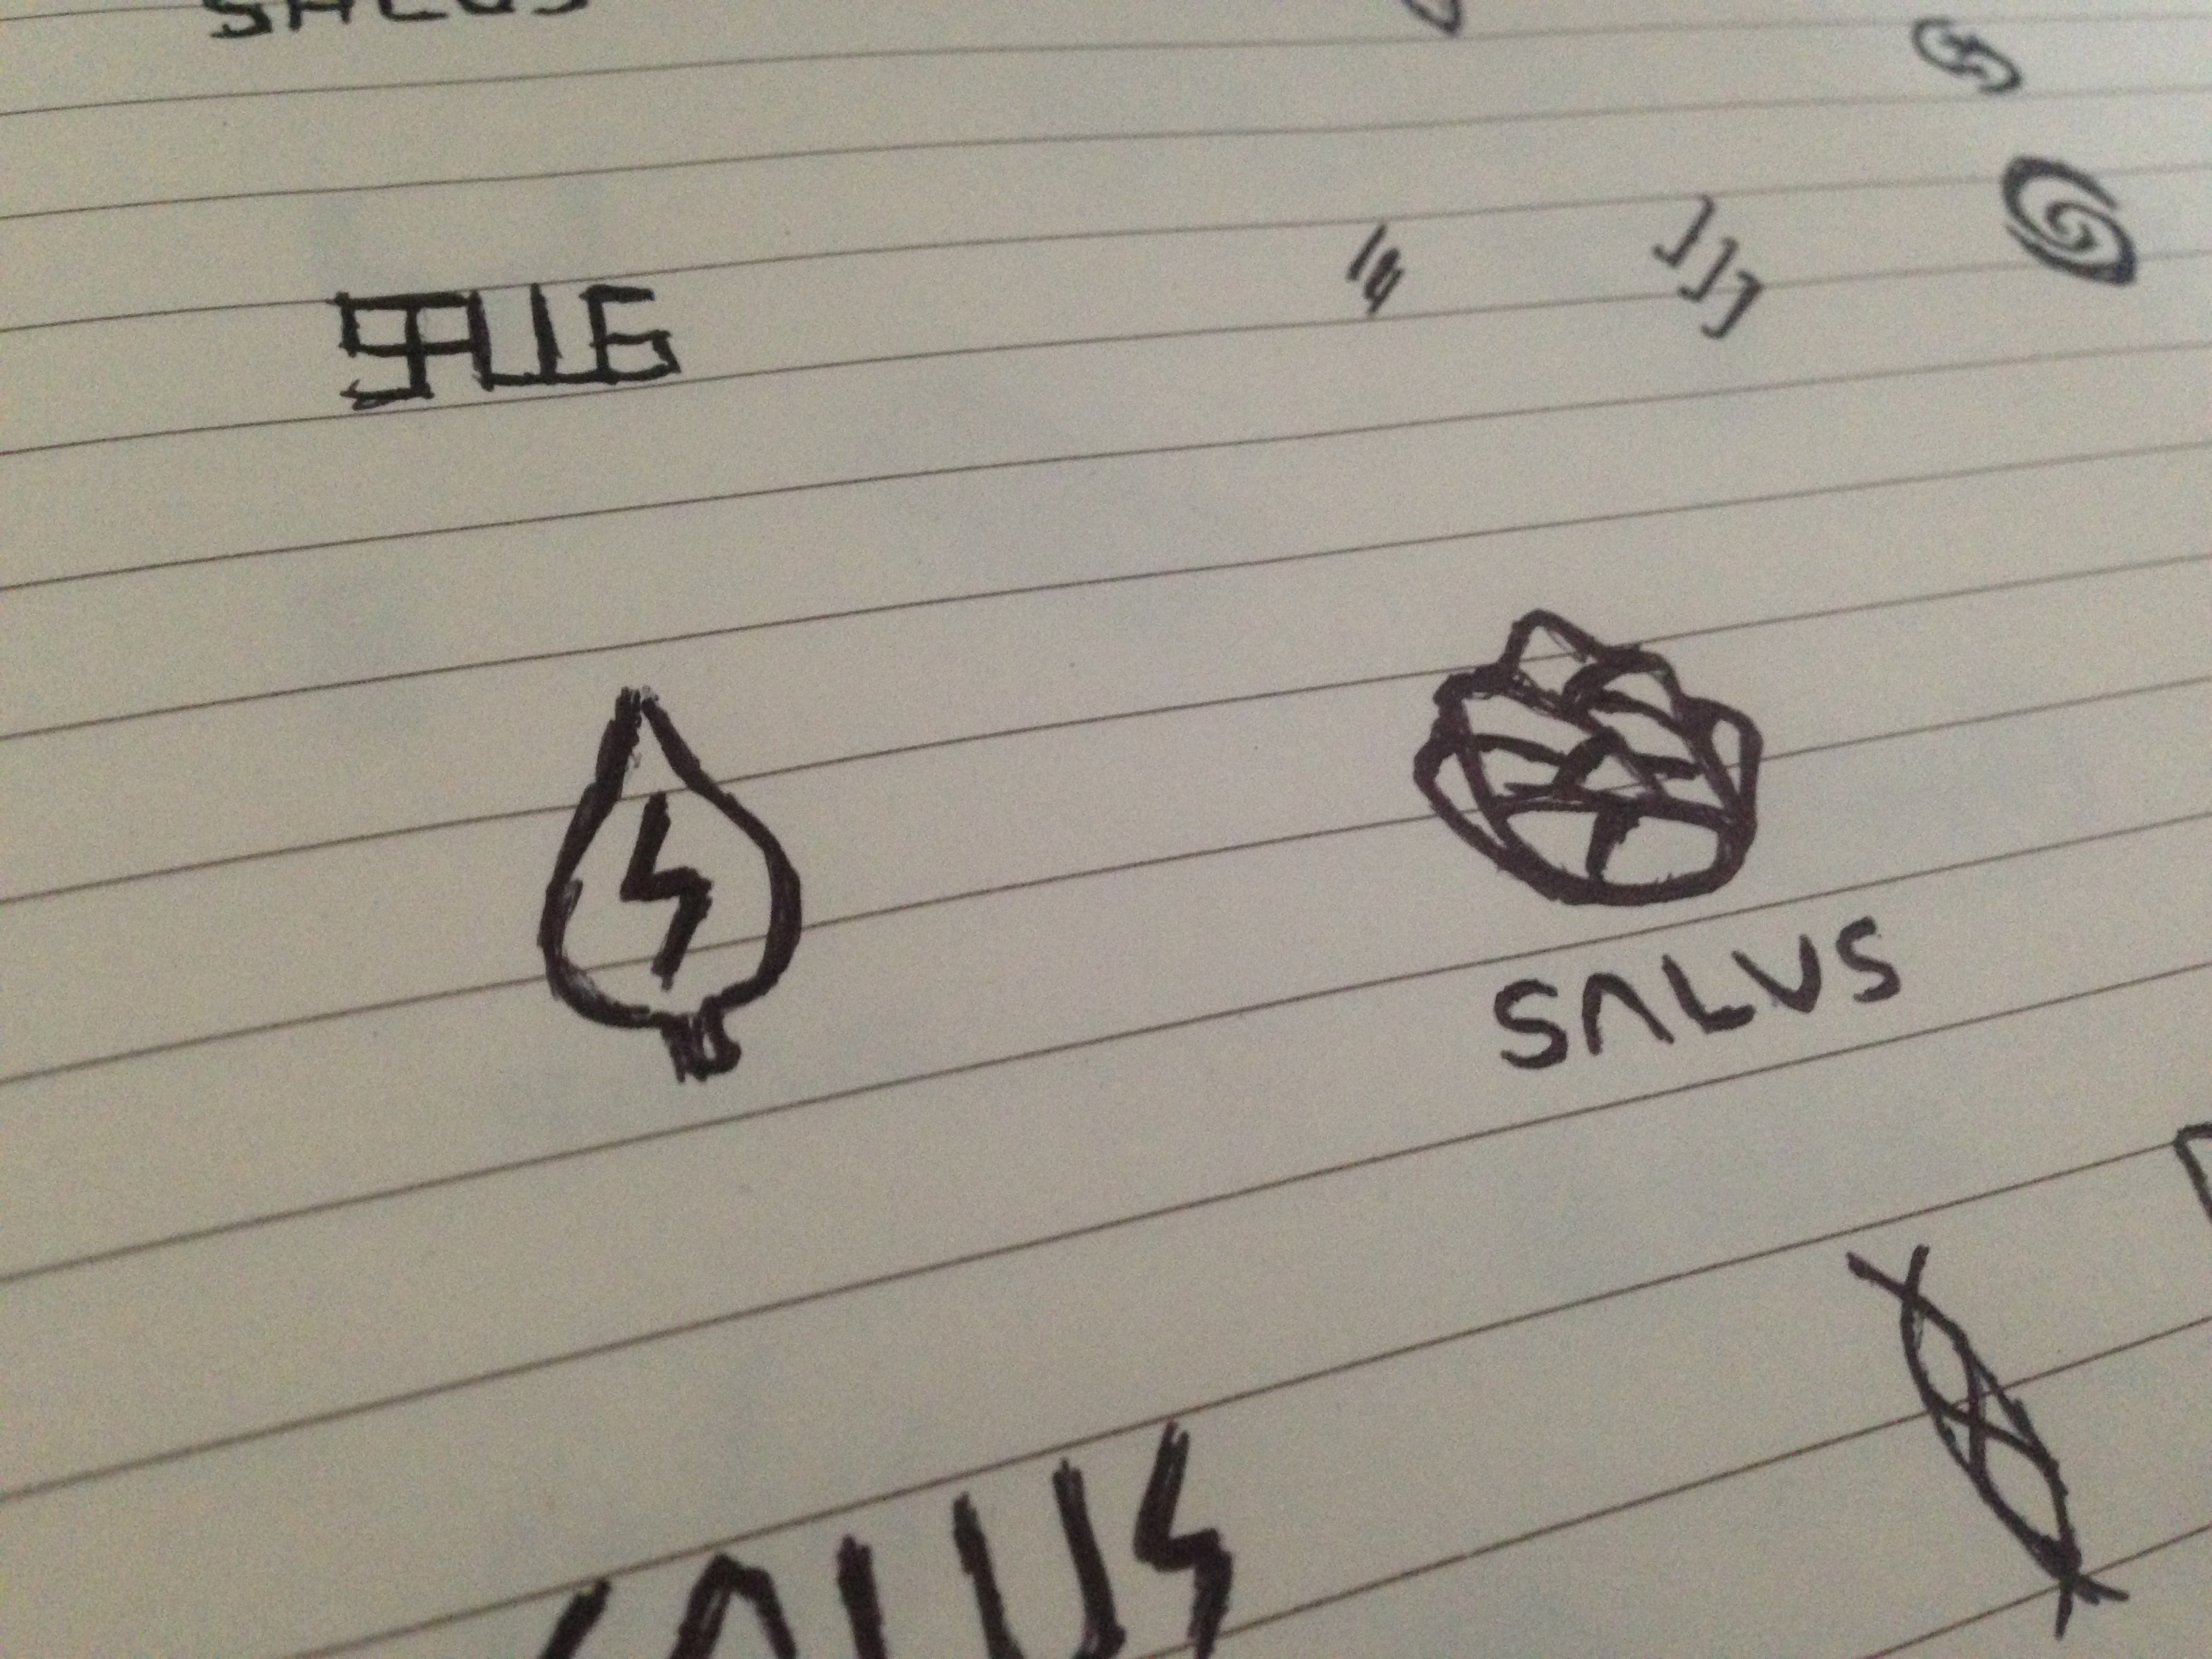 SALUS
SALUS
SALUS
SALUS